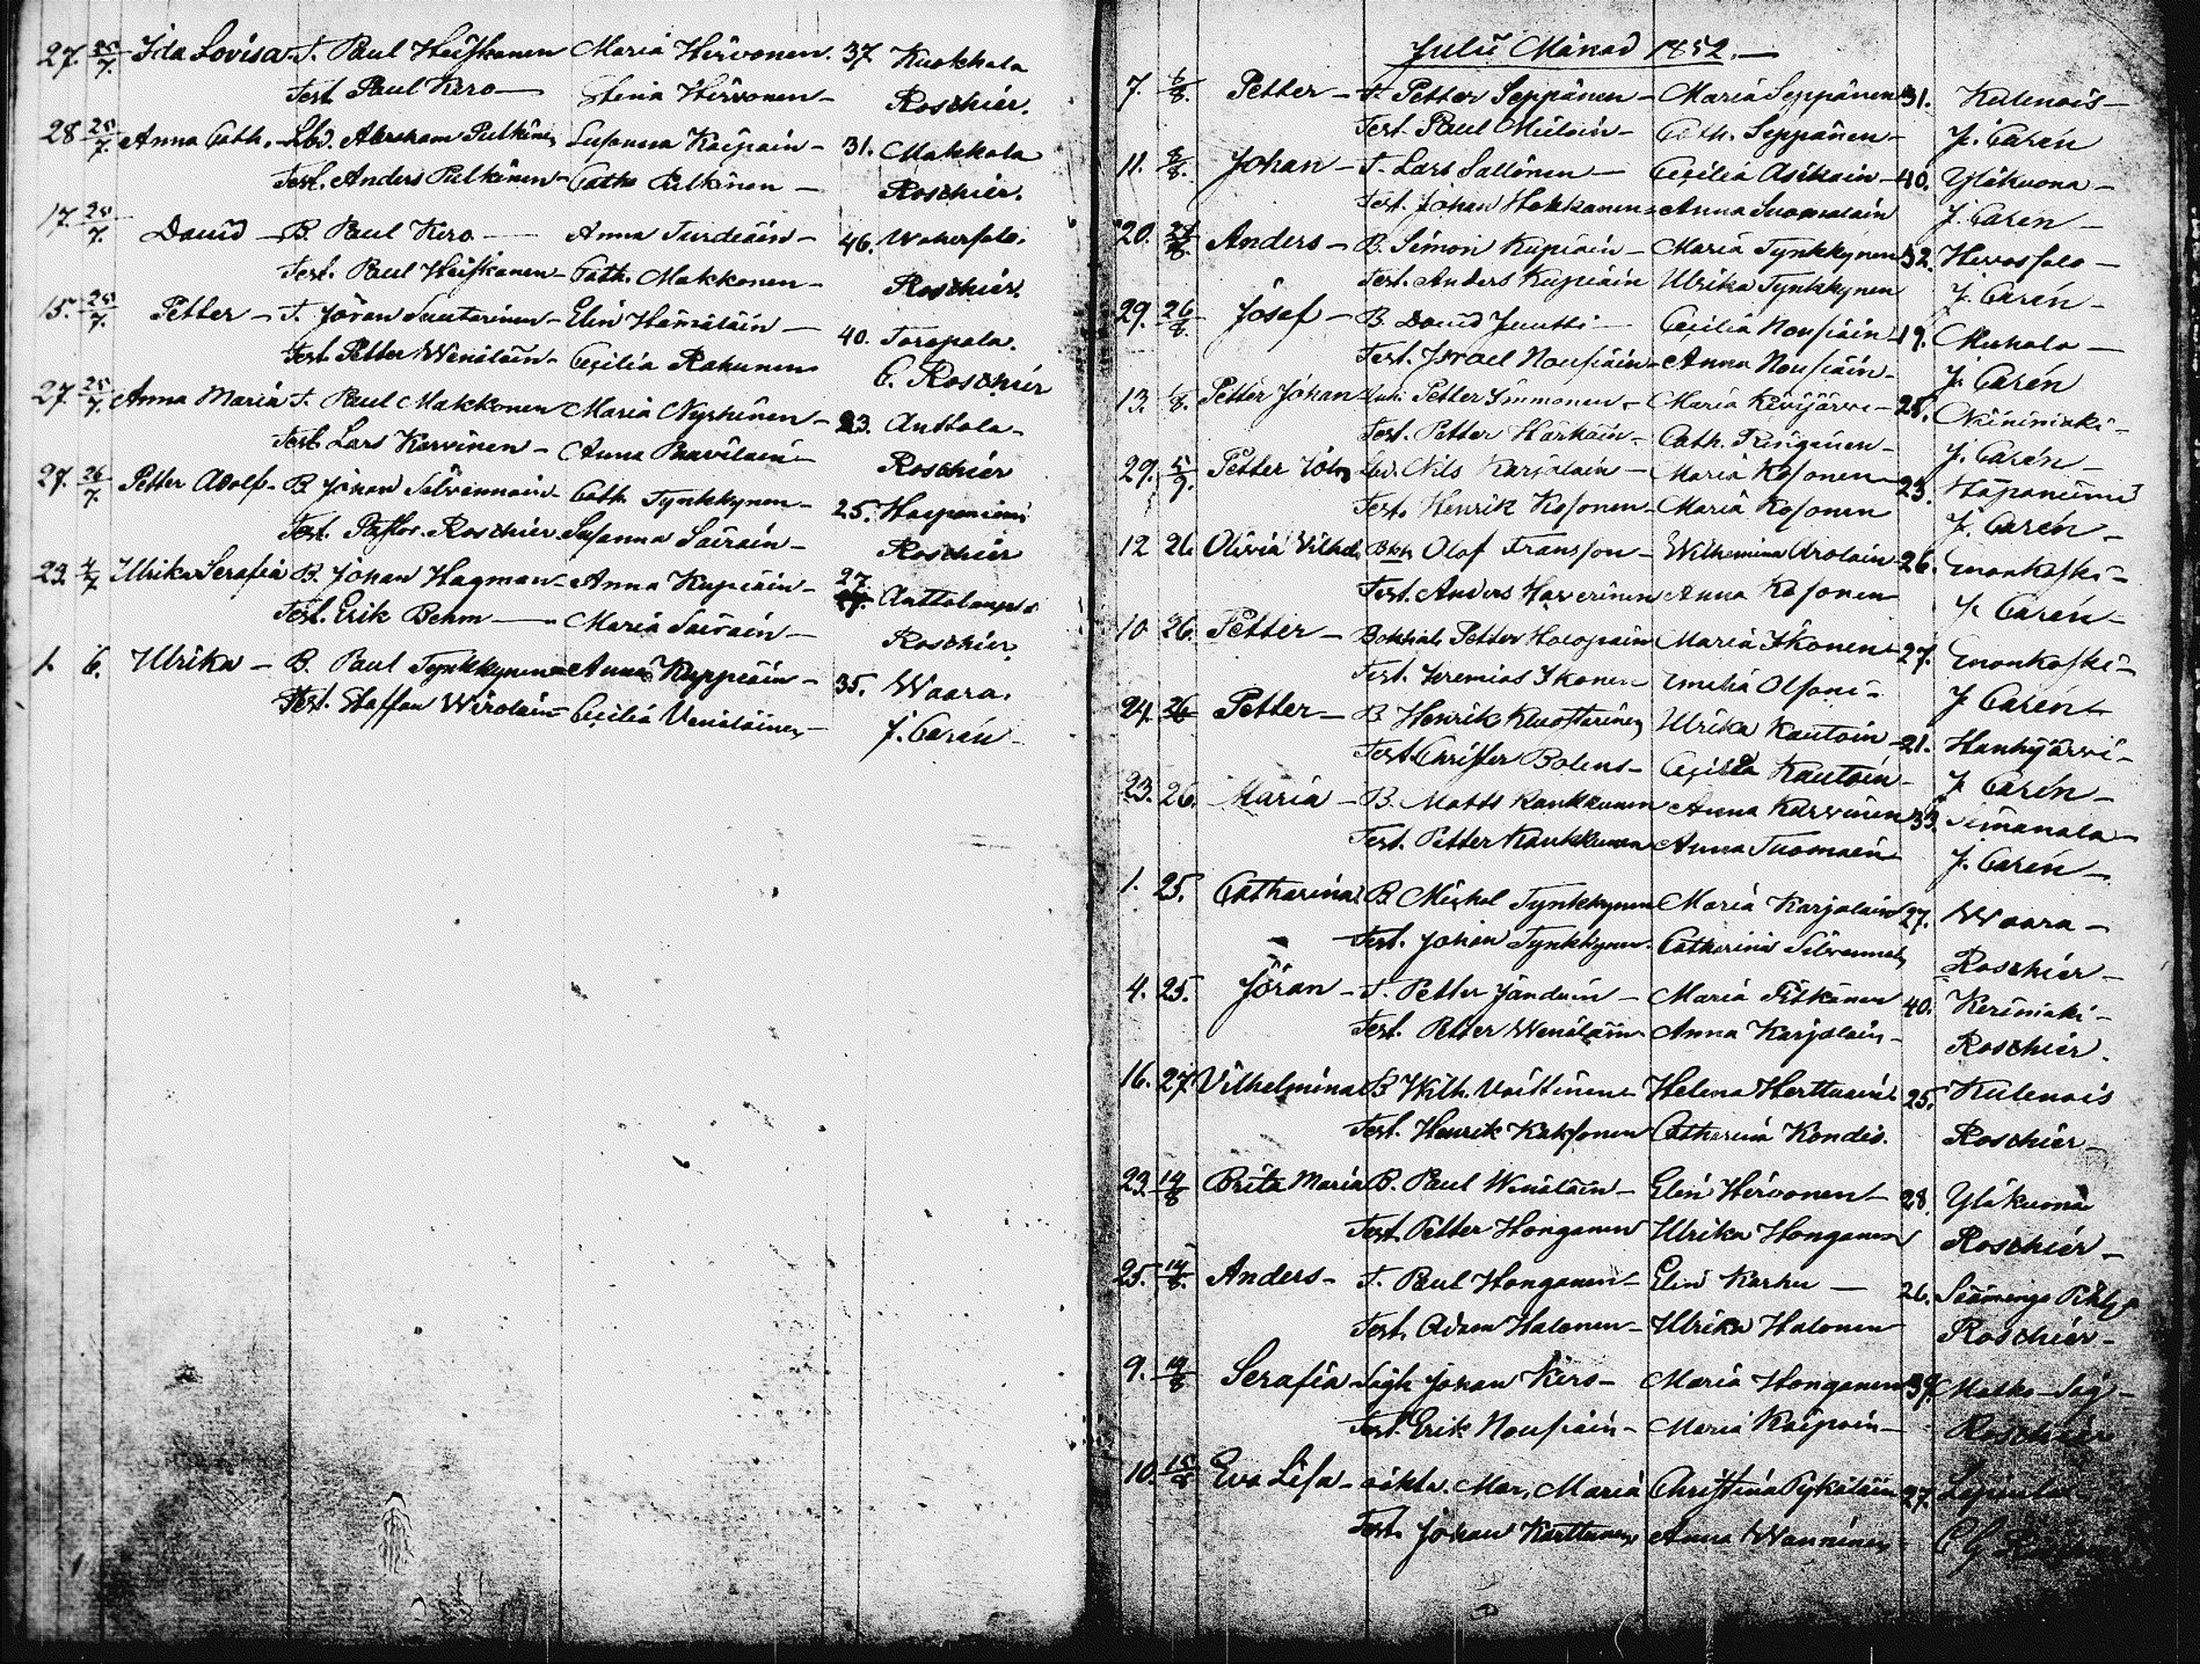 27. 25/7. Ida Lovisa. T. Paul Heiskanen Maria Hirvonen. 37 Kuokkala
Test Paul Kero — Stina Hirvonen — Roschier.
28 25/7. Anna Cath. — Lbd. Abraham Pulkinen Susanna Kaipain — 31. Makkola
Test. Anders Pulkinen — Cath. Pulkinen — Roschier.
17. 25/7. David — B. Paul Kero — Anna Turdiain — 46.
Test. Paul Heiskanen — Cath. Makkonen — Roschier.
15. 25/7. Petter — T. Jöran Suutarinen — Elin Hämäläin — 40. Toropala.
Test Petter Wenäläin — Ceciliá Rahunen C. Roschier
27. 25/7. Anna Maria T. Paul Makkonen Maria Nyrhinen — 23. Anttola —
Test Lars Karvinen — Anna Paavilain — Roschier
27. 26/7. Petter Adolf — B. Johan Silvennoin — Cath. Tynkkynen — 25. Haapaniemi
Test. Pastor. Roschier Susanna Sairain — Roschier
23. 4/7 Ulrika Serafia B. Johan Hagman — Anna Kupiäin — 27.
Test. Erik Behm — Maria Sairain — Roschier.
1. 6. Ulrika — B. Paul Tynkkynen — Anna Kuppiäin — 35. Waara.
Test. Staffan Wirolain — Cecilia Venäläinen — J. Carén —
Julii Månad 1852. —
7. 6/8. Petter — T. Petter Seppänen — Maria Seppänen 31. Kulenois —
Test. Paul Muloin — Cath. Seppänen — J. Carén
11. 8/8. Johan — T. Lars Sallinen — Cecilia Asikain — 40. Yläkuona —
Test. Johan Hokkanen — Anna Suomalain J. Carén —
20. Anders — B. Simon Kupiäin — Maria Tynkkynen 32. Hevossalo —
Test. Anders Kupiäin Ulrika Tynkkynen J. Carén —
29. 26/8. Josef — B. David Juutti — Cecilia Nousiäin — 19. Muhola —
Test. Israel Nousiäin — Anna Nousiäin — J. Carén
13. /8. Petter Johan Petter Immonen — Maria Kivijärvi — 25. Niinimäki —
Test. Petter Härkäin — Cath. Tunganen — J. Carén —
29. 5/9. Petter Joh. Lbd. Nils Karjalain — Maria Kosonen 23. Haapaniemi
Test. Henrik Kosonen — Maria Kosonen J. Carén —
12 26 Olivia Vilhel. Olof Fransson — Wilhemina Arolain 26. Enonkoski —
Test. Anders Haverinen Anna Kosonen J. Carén —
10 26. Petter — Petter Holopain Maria Ikonen — 27. Enonkoski —
Test. Jeremias Ikonen Emelia Olsoni — J. Carén —
24. 26 Petter — B. Henrik Kuostarinen Ulrika Kautoin — 21. Hanhijärvi —
Test. Christer Bolens — Cecilia Kautoin — J. Carén —
23. 26. Maria — B. Matts Kaukkunen Anna Karvinen 33. Simanala —
Test. Petter Kaukkunen Anna Tuomain J. Carén —
1. 25. Catharina B. Mickel Tynkkynen Maria Karjalain 27. Waara —
Test. Johan Tynkkynen Catharina Silvennoin Roschier —
4. 25. Jöran — T. Petter Janduin — Maria Pitkänen 40. Kerimäki —
Test. Petter Wenäläin Anna Karjalain — Roschier.
16. 27. Vilhelmina B Wilh. Voittinen Helena Herttuain 25. Kulenois
Test. Henrik Kaksonen Catharina Kondis. Roschier —
23. 14/8 Brita Maria B. Paul Wenäläin — Elin Hirvonen — 28. Yläkuona
Test. Petter Honganen Ulrika Honganen Roschier —
25. 14/8. Anders — T. Paul Honganen — Elin Karhu — 26. Säämingi
Test. Adam Halonen — Ulrika Halonen Roschier —
9. 14/8 Serafia Johan Kiro — Maria Honganen 39. Matko Såg —
Test. Erik Nousiäin — Maria Kaipain — Roschier
10. 15/8 Eva Lisa — oäkta. Mor, Maria Christina Pykäläin 27.
Test. Johan Karttunen Anna Wanninen